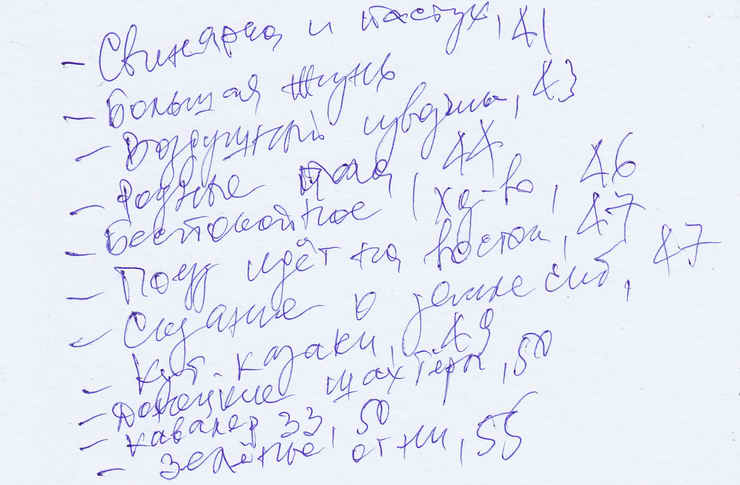 - Свинарка и пастух, 41
- Большая жизнь
- Воздушный извозчик, 43
- Родные поля, 44
- Беспокойное хоз-во, 46
- Поезд идёт на восток, 47
- Сказание о земле сиб, 47
- Куб. казаки, 49
- Донецкие шахтёры, 50
- Кавалер 33, 50
- Зелёные огни, 55